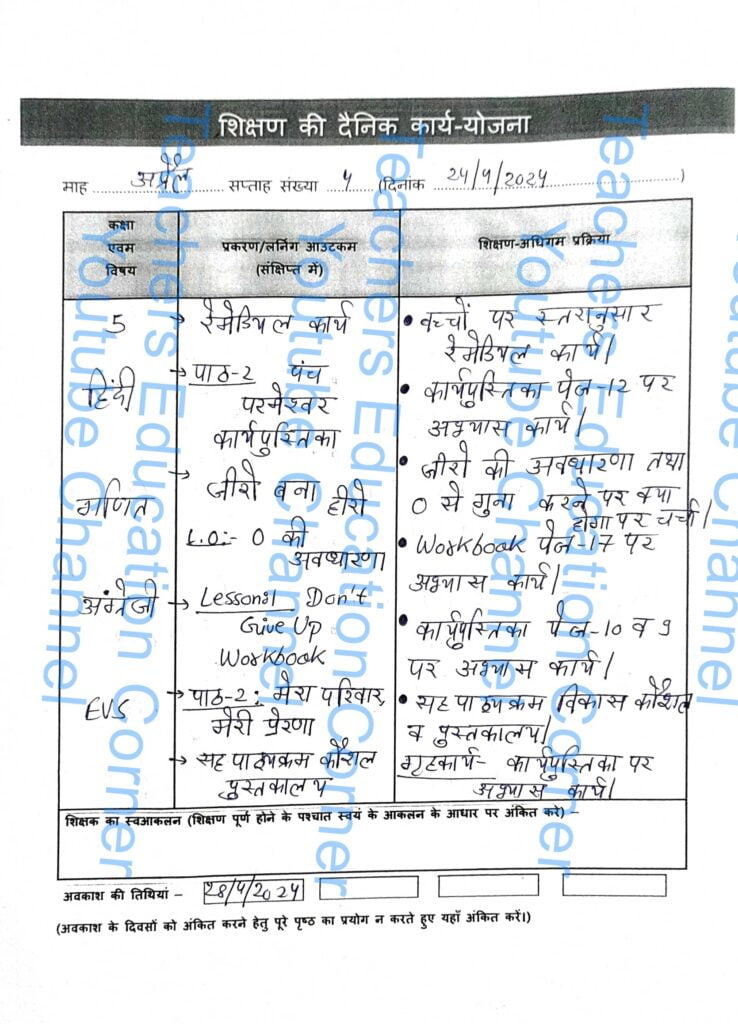 शिक्षण की दैनिक कार्य-योजना
माह अप्रैल सप्ताह संख्या 4 (दिनांक 24/4/2024)
कक्षा
एवम
विषय
प्रकरण/लर्निंग आउटकम
(संक्षिप्त में)
शिक्षण-अधिगम प्रक्रिया
5
हिंदी
गणित
अंग्रेजी
EVS
→ रेमेडियल कार्य
→ पाठ-2 पंच
परमेश्वर
कार्यपुस्तिका
→ जीरो बना हीरो
L.O:- 0 की
अवधारणा
→ Lesson:1 Don't
Give Up
Workbook
→ पाठ-2: मेरा परिवार,
मेरी प्रेरणा
→ सह पाठ्यक्रम कौशल
पुस्तकालय
• बच्चों पर स्तरानुसार
रेमेडियल कार्य।
• कार्यपुस्तिका पेज-12 पर
अभ्यास कार्य।
• जीरो की अवधारणा तथा
0 से गुना करने पर क्या
होगा पर चर्चा।
• Workbook पेज-17 पर
अभ्यास कार्य।
• कार्यपुस्तिका पेज-10 व 9
पर अभ्यास कार्य।
• सह पाठ्यक्रम विकास कौशल
व पुस्तकालय।
गृहकार्य- कार्यपुस्तिका पर
अभ्यास कार्य।
शिक्षक का स्वआकलन (शिक्षण पूर्ण होने के पश्चात स्वयं के आकलन के आधार पर अंकित करे) –
अवकाश की तिथियां – 28/4/2024
(अवकाश के दिवसों को अंकित करने हेतु पूरे पृष्ठ का प्रयोग न करते हुए यहाँ अंकित करें।)
Teachers Education Corner
Youtube Channel
Teachers Education Corner
Youtube Channel
Teachers Education Corner
Youtube Channel